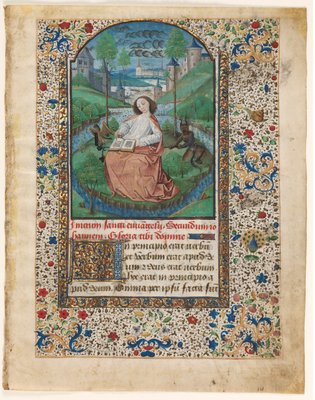 Inicium sancti euvangelii. Secundum io
hannem. Gloria tibi domine
In principio erat verbu
et verbum erat apud de
um et deus erat verbum
hoc erat in principio a
pud deum. Omnia per ipsu facta sut